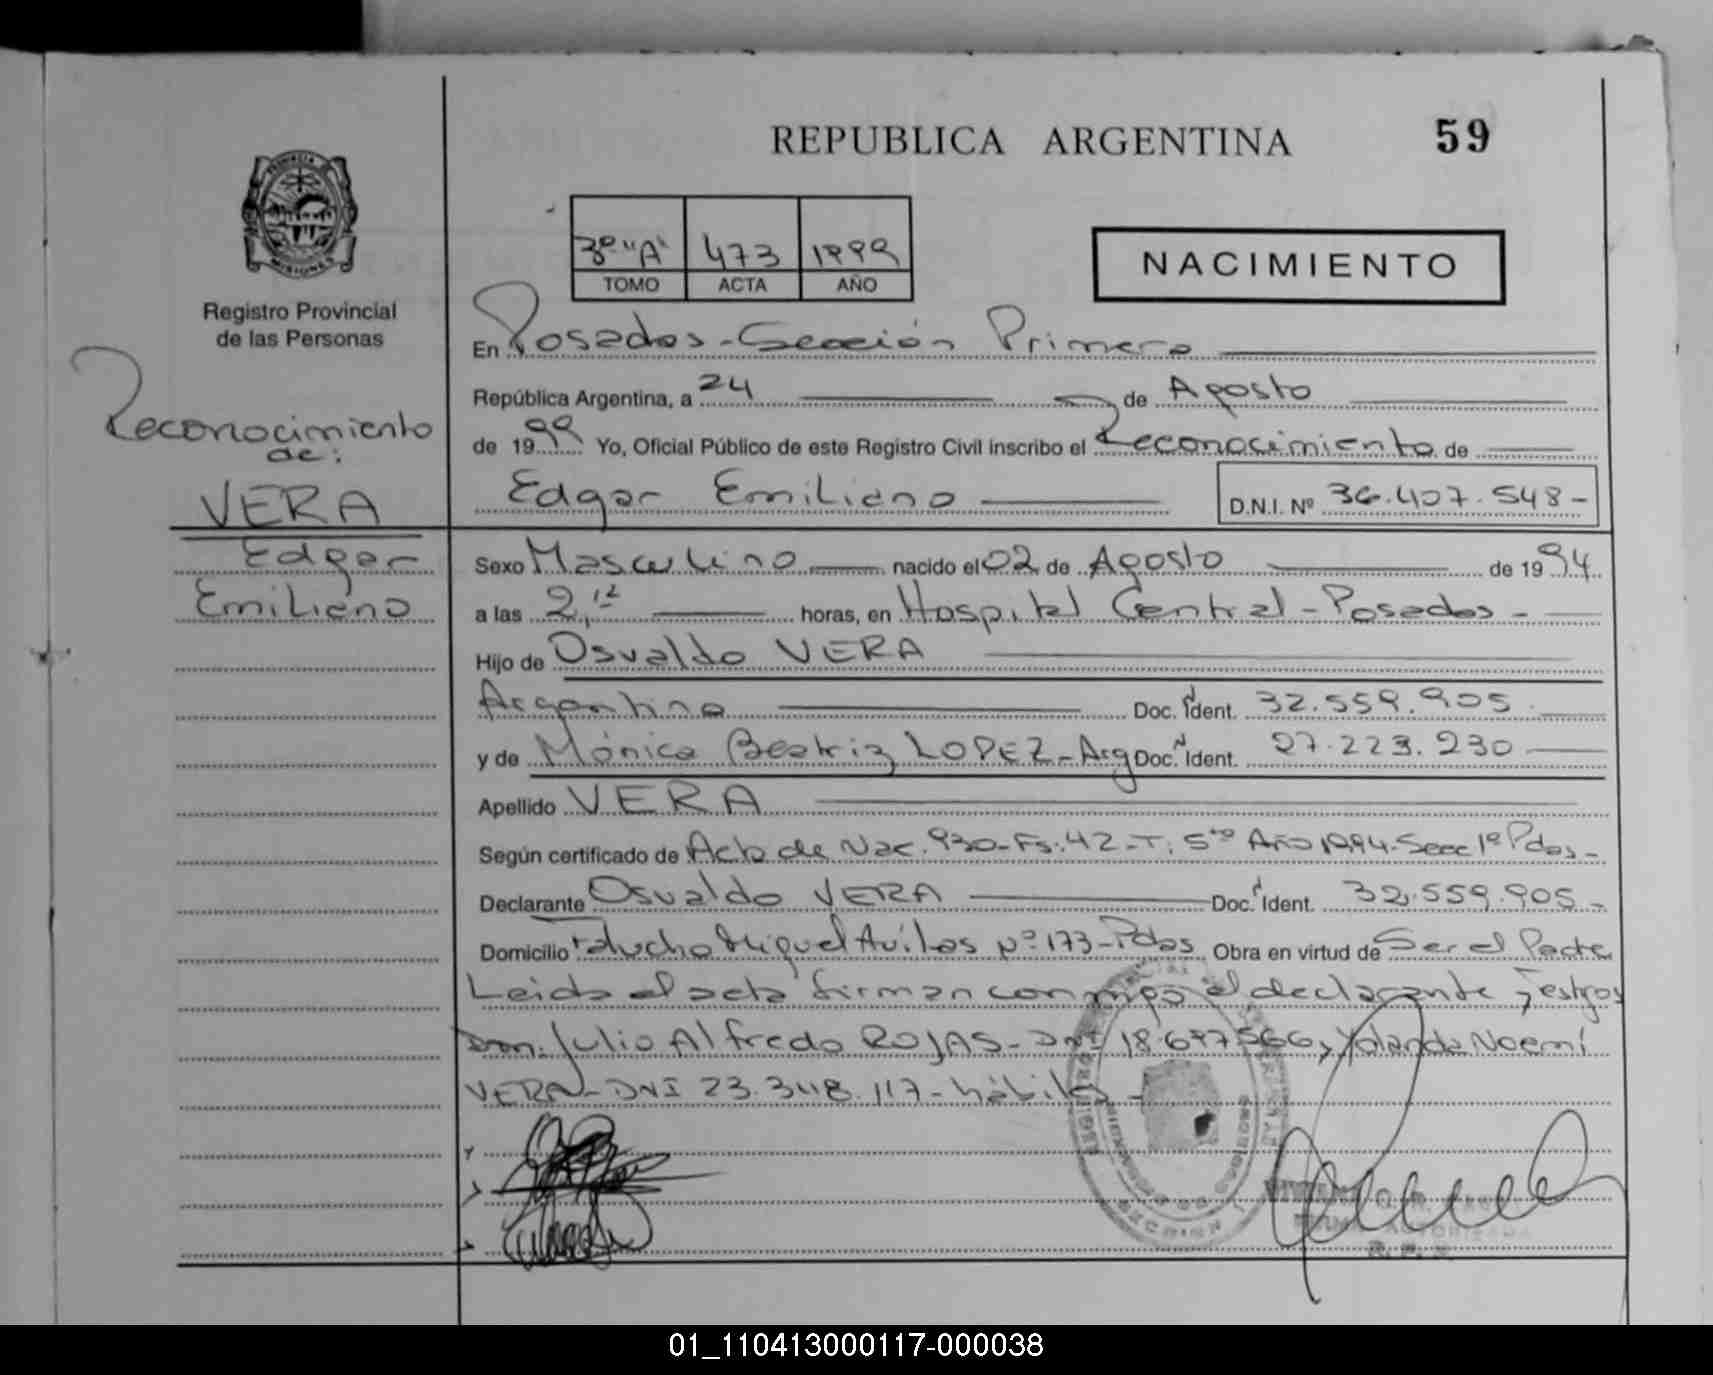 REPUBLICA ARGENTINA 59
PROVINCIA DE MISIONES
Registro Provincial
de las Personas
3º "A" 473 1999
TOMO ACTA AÑO
NACIMIENTO
Reconocimiento
de:
VERA
Edgar
Emiliano
En Posadas - Sección Primera
República Argentina, a 24 de Agosto
de 1999 Yo, Oficial Público de este Registro Civil inscribo el Reconocimiento de
Edgar Emiliano D.N.I. Nº 36.407.548-
Sexo Masculino nacido el 02 de Agosto de 1994
a las 2,12 horas, en Hospital Central - Posadas -
Hijo de Osvaldo VERA
Argentino Doc. Ident. 32.559.905
y de Mónica Beatriz LOPEZ - Arg Doc. Ident. 27.223.230
Apellido VERA
Según certificado de Acta de Nac. 930 - Fs. 42 - T. 5to Año 1994 - Secc 1º Pdas -
Declarante Osvaldo VERA Doc. Ident. 32.559.905 -
Domicilio Lucho Miguel Avilas Nº 173 - Pdas Obra en virtud de Ser el Padre
Leida el acta firman conmigo el declarante y testigos
Don. Julio Alfredo ROJAS - DNI y Yolanda Noemí
VERA - DNI 23.348.117 - hábiles -
R. P. P.
01_110413000117-000038